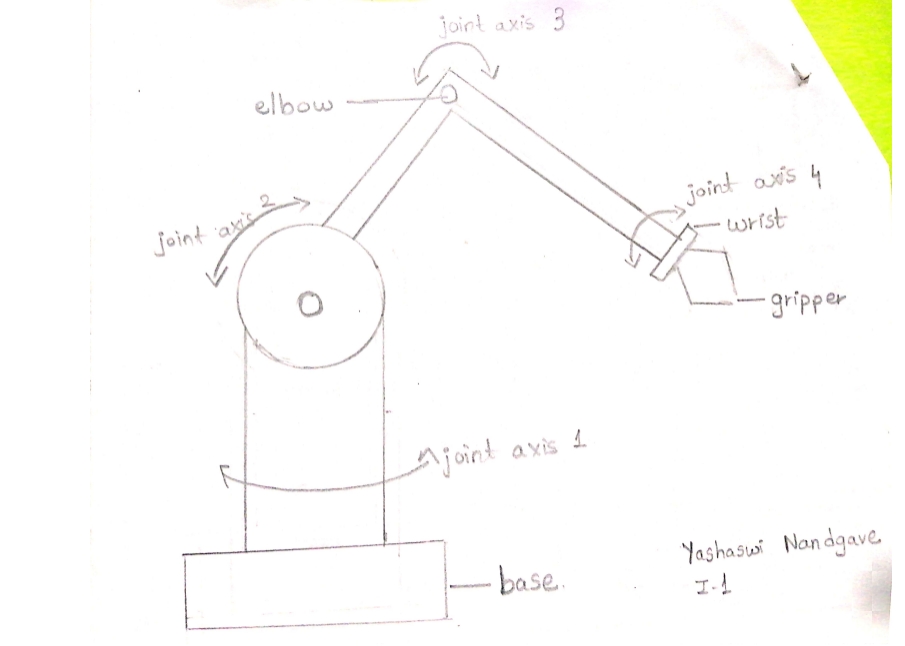 joint axis 3
elbow
joint axis 2
joint axis 4
wrist
gripper
joint axis 1
base.
Yashaswi Nandgave
I-1